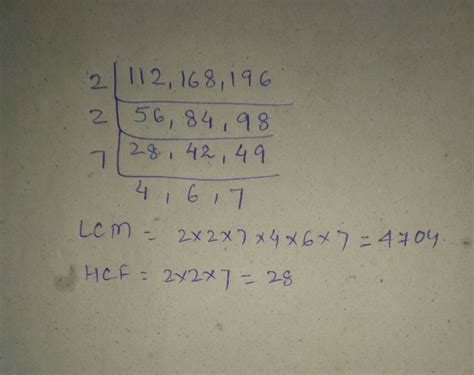 2 | 112, 168, 196
2 | 56, 84, 98
7 | 28, 42, 49
4, 6, 7
LCM = 2×2×7×4×6×7 = 4704.
HCF = 2×2×7 = 28